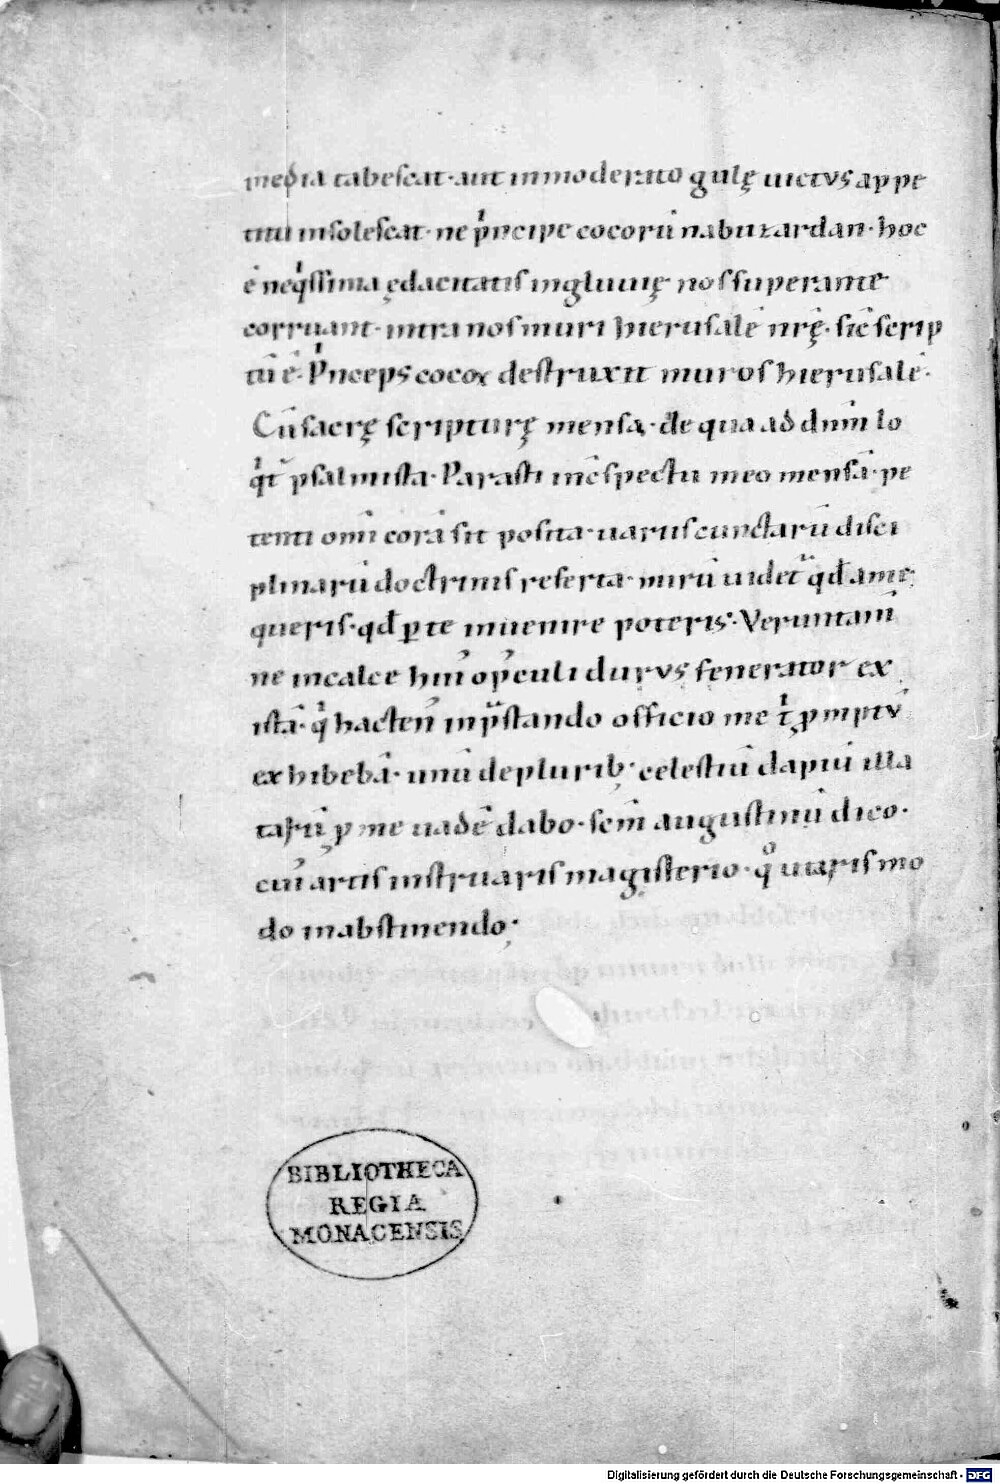 media tabescat · aut inmoderato gulę uictus appe
titu insolescat · ne p̍ncipe cocorū nabuzardan · hoc
ē neq̍ssima ędacitatis ingluuię nos superante
corruant · intra nos muri hierusalē nr̄ę · sic̄ scrip
tū ē · P̍nceps cocoꝝ destruxit muros hierusalē ·
Cū sacrę scripturę mensa · de qua ad dn̄m lo
q̍t᷒ psalmista · Parasti in c̄spectu meo mensā · pe
tenti om̄i corā sit posita · uariis cunctarū disci
plinarū doctrinis referta · mirū uidet᷒ qđ a me
queris · qđ ꝑ te inuenire poteris · Veruntam̄
ne in calce hui᷒ op̄culi durus fenerator ex
istā · q̍ hacten᷒ in p̄stando officio me t̍ ꝓmptū
exhibebā · unū de plurib; celestiū dapiū illa
tarū ꝓ me uadē dabo · sc̄m augustinū dico ·
cui᷒ artis instruaris magisterio · qͦ utaris mo
do in abstinendo ·
BIBLIOTHECA
REGIA
MONACENSIS
Digitalisierung gefördert durch die Deutsche Forschungsgemeinschaft - DFG